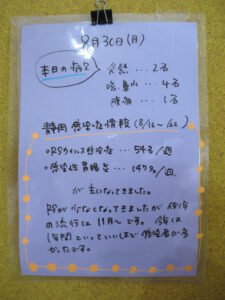 9月30日(月)
本日の病欠
発熱…2名
喉、鼻水…4名
腹痛…1名
静岡 感染症情報(9/16〜/22)
○RSウイルス感染症…54名/週
○感染性胃腸炎…147名/週
が主になってきました。
RSが少なくなってきましたが 例年
の流行は11月〜です。今年は
1年間といっていいほど感染者が多
かったです。